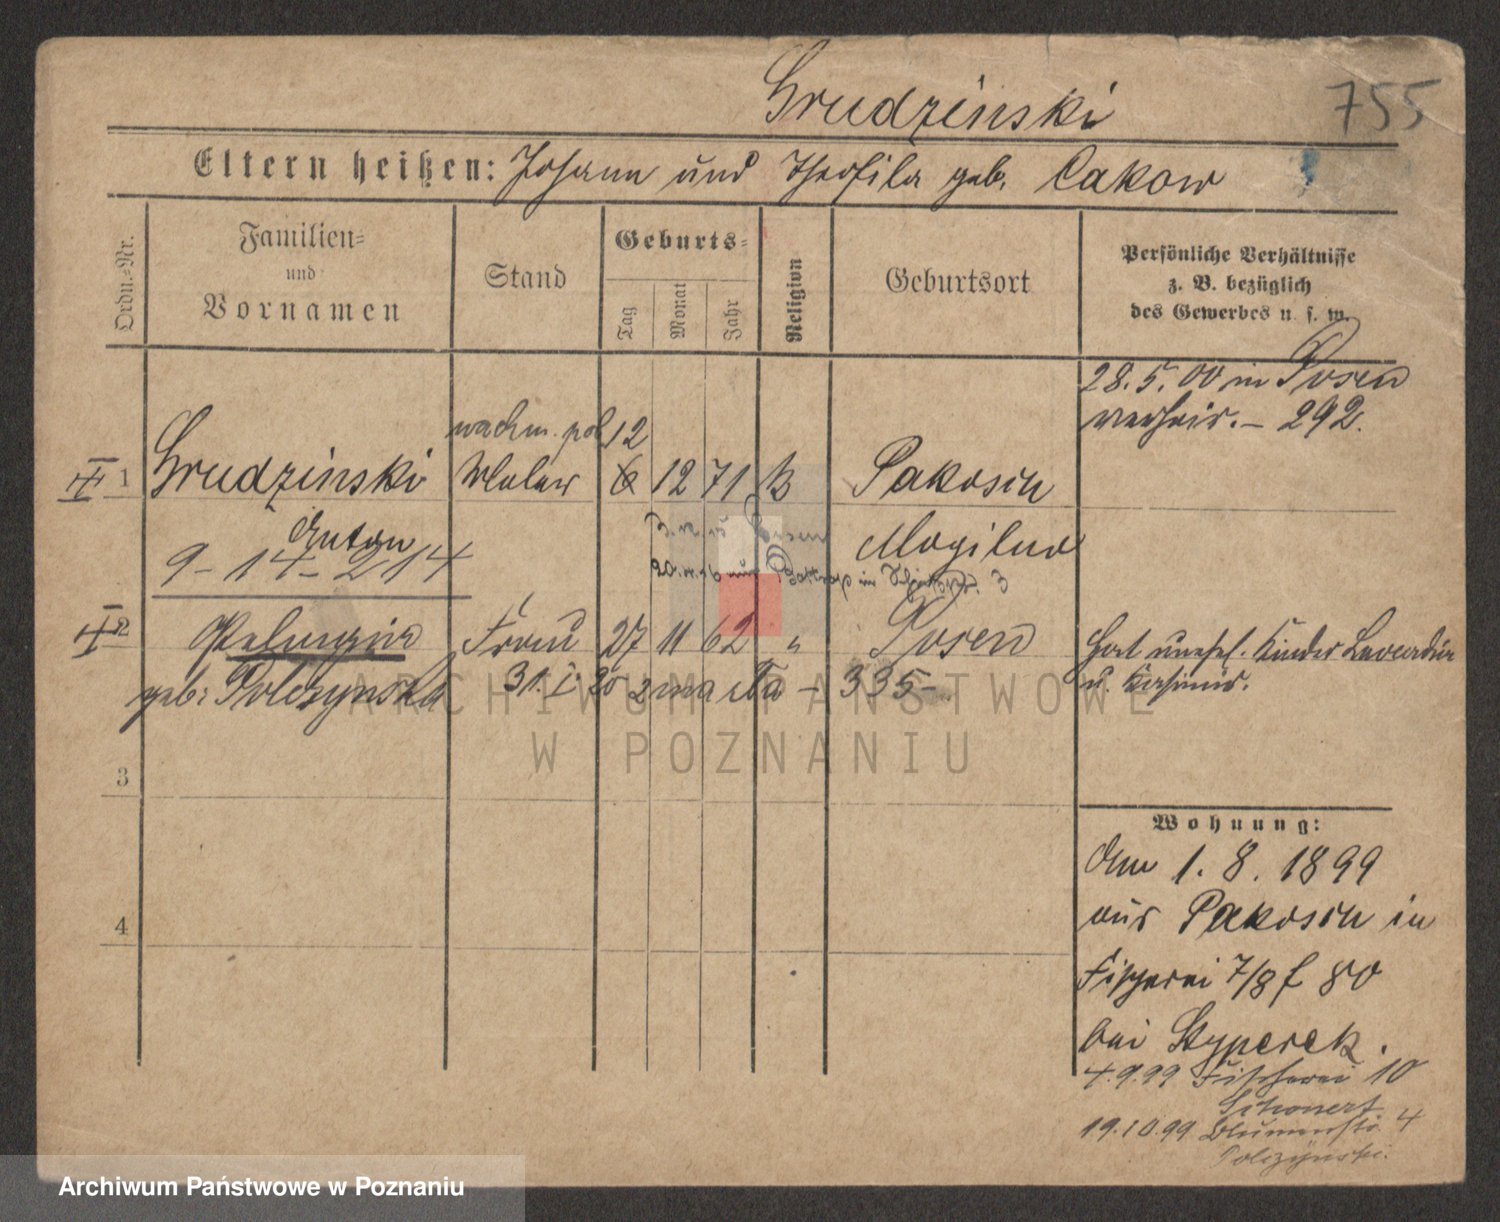 Grudzinski 755
Eltern heißen: Johann und Theofila geb. Cakow
Ordn.=Nr.
Familien=
und
Vornamen
Stand
Geburts=
Tag
Monat
Jahr
Religion
Geburtsort
Persönliche Verhältnisse
z. B. bezüglich
des Gewerbes u. s. w.
28.5.00 in Posen
verheir. - 292.
wachm. pol 12
1 Grudzinski Maler 6 12 71 k Pakosch
Anton Mogilno
9 - 14 - 214
2 Pelagia Frau 27 11 62 " Posen
geb: Polczynska 31. I. 20 zmarła - 335 -
Hat unehel. Kinder
u. Kasimir.
3
4
Wohnung:
Am 1. 8. 1899
aus Pakosch in
Fischerei 7/8 f 80
bei Styperek.
4.9.99 Fischerei 10
19.10.99 Blumenstr. 4
Polczynski.
ARCHIWUM PAŃSTWOWE
W POZNANIU
Archiwum Państwowe w Poznaniu